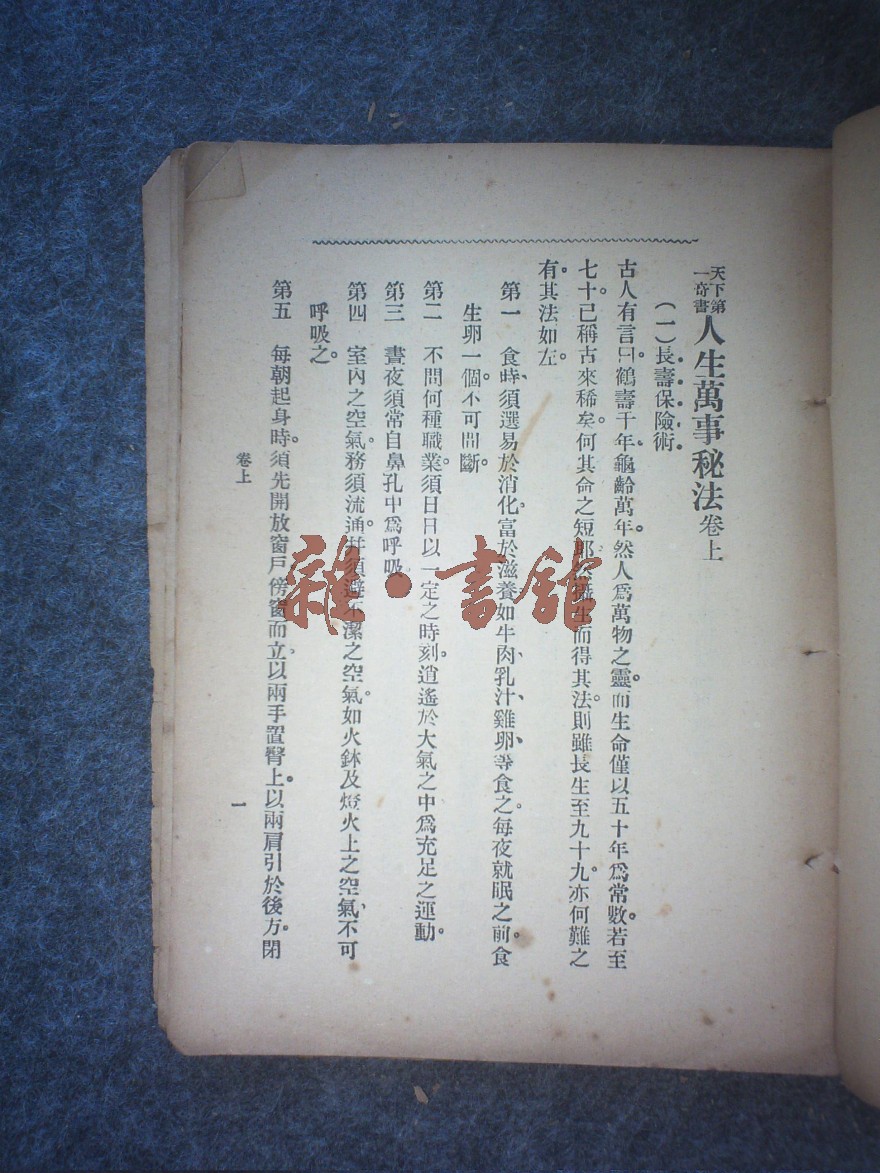 天下第一奇書 人生萬事秘法 卷上
(一)長壽保險術
古人有言曰。鶴壽千年。龜齡萬年。然人爲萬物之靈。而生命僅以五十年爲常數。若至
七十。已稱古來稀矣。何其命之短耶。然攝生而得其法。則雖長生至九十九。亦何難之
有。其法如左。
第一 食時、須選易於消化。富於滋養如牛肉、乳汁、雞卵、等食之。每夜就眠之前。食
生卵一個。不可間斷。
第二 不問何種職業。須日日以一定之時刻。逍遙於大氣之中。爲充足之運動。
第三 晝夜須常自鼻孔中爲呼吸
第四 室內之空氣。務須流通。并須避不潔之空氣。如火鉢及燈火上之空氣、不可
呼吸之。
第五 每朝起身時。須先開放窗戶。傍窗而立。以兩手置臂上。以兩肩引於後方。閉
卷上
一
雜·書館